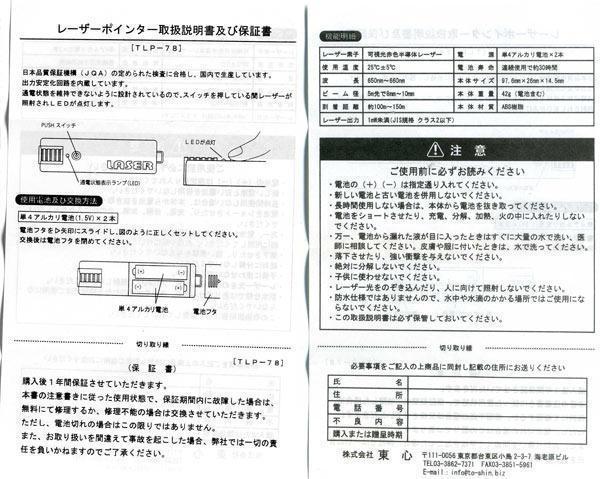 レーザーポインター取扱説明書及び保証書
[TLP-78]
日本品質保証機構(JQA)の定められた検査に合格し、国内で生産しています。
出力安定化回路を内蔵しています。
通電状態を維持できないように設計されているので、スイッチを押している間レーザーが
照射されLEDが点灯します。
PUSH スイッチ
LEDが点灯
LASER
通電状態表示ランプ(LED)
使用電池及び交換方法
単4アルカリ電池(1.5V)×2本
電池フタを▷矢印にスライドし、図のように正しくセットしてください。
交換後は電池フタを閉めてください。
単4アルカリ電池
電池フタ
切り取り線
[TLP-78]
(保 証 書)
購入後1年間保証させていただきます。
本書の注意書きに従った使用状態で、保証期間内に故障した場合は、
無料にて修理するか、修理不能の場合は交換させていただきます。
ただし、電池切れの場合はこの限りではありません。
また、お取り扱いを間違えて事故を起こした場合、弊社では一切の責
任を負いかねますのでご了承ください。
機能明細
レーザー素子 可視光赤色半導体レーザー 電源 単4アルカリ電池×2本
使用温度 25℃±5℃ 電池寿命 連続使用で約30時間
波長 650m~660m 本体サイズ 97.6mm×26mm×14.5mm
ビーム径 5m先で8mm~10mm 本体重量 42g(電池含む)
到着距離 約100m~150m 本体材質 ABS樹脂
レーザー出力 1mW未満(JIS規格 クラス2以下)
注 意
ご使用前に必ずお読みください
・電池の(+)(-)は指定通り入れてください。
・新しい電池と古い電池を併用しないでください。
・長時間使用しない場合は、本体から電池を抜き取ってください。
・電池をショートさせたり、充電、分解、加熱、火の中に入れたりしない
でください。
・万一、電池から漏れた液が目に入ったときはすぐに大量の水で洗い、医
師に相談してください。皮膚や服に付いたときは、水で洗ってください。
・落下させたり、強い衝撃を与えないでください。
・絶対に分解しないでください。
・子供に使わせないでください。
・レーザー光をのぞき込んだり、人に向けて照射しないでください。
・防水仕様ではありませんので、水中や水滴のかかる場所ではご使用にな
らないでください。
・この取扱説明書は必ず保管しておいてください。
切り取り線
必要事項をご記入の上商品に同封し記載の住所にお送りください
氏名
住所
電話番号
不良内容
購入または贈呈時期
株式会社 東 心 〒111-0056 東京都台東区小島2-3-7 海老原ビル
TEL03-3862-7371 FAX03-3851-5961
E-mail:info@to-shin.biz